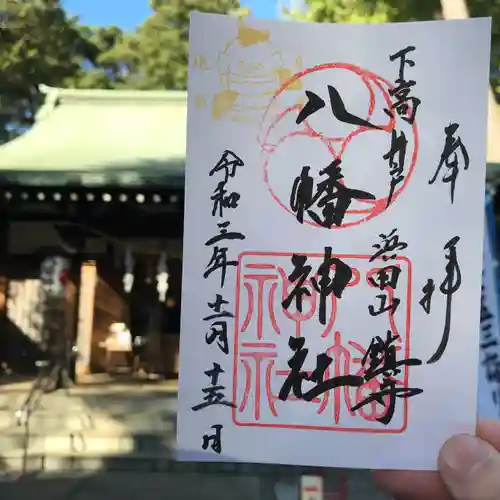 奉拝
下高井戸
浜田山 鎮守
八幡神社
令和三年十一月十五日